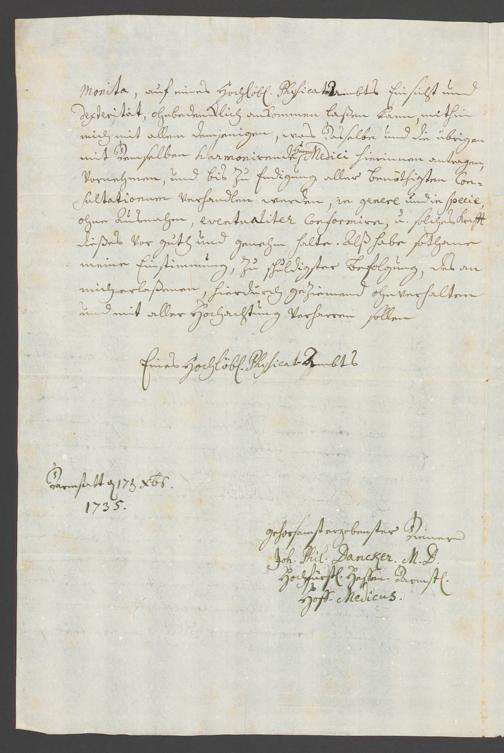 Monita, auf eines Hochlöbl. Physicat Ambts Einsicht und
dexterität, ohnbedencklich ankommen laßen kann, mithin
mich mit allem demjenigen, was dasselbe und die übrigen
mit demselben harmonirende Herrn Medici hierinnen antragen,
vornehmen, und bis zu Endigung aller benöthigten Con-
sultationum verhandlen werden, in genere und in specie,
ohne Ausnahm, eventualiter conformire, u.
dießes vor guth und genehm halte. Alß habe sothane
meine Einstimmung, zu schuldigster Befolgung, des an
mich erlaßenen, hierdurch geziemend ohnverhalten
und mit aller Hochachtung verharren sollen
Eines Hochlöbl. Physicat Ambts
Darmstatt d 17 Xbr.
1735.
gehorsamst ergebenster Diener
Joh. Phil. Dancker. M. D
Hochfürstl. Hessen Darmst.
Hoff Medicus.